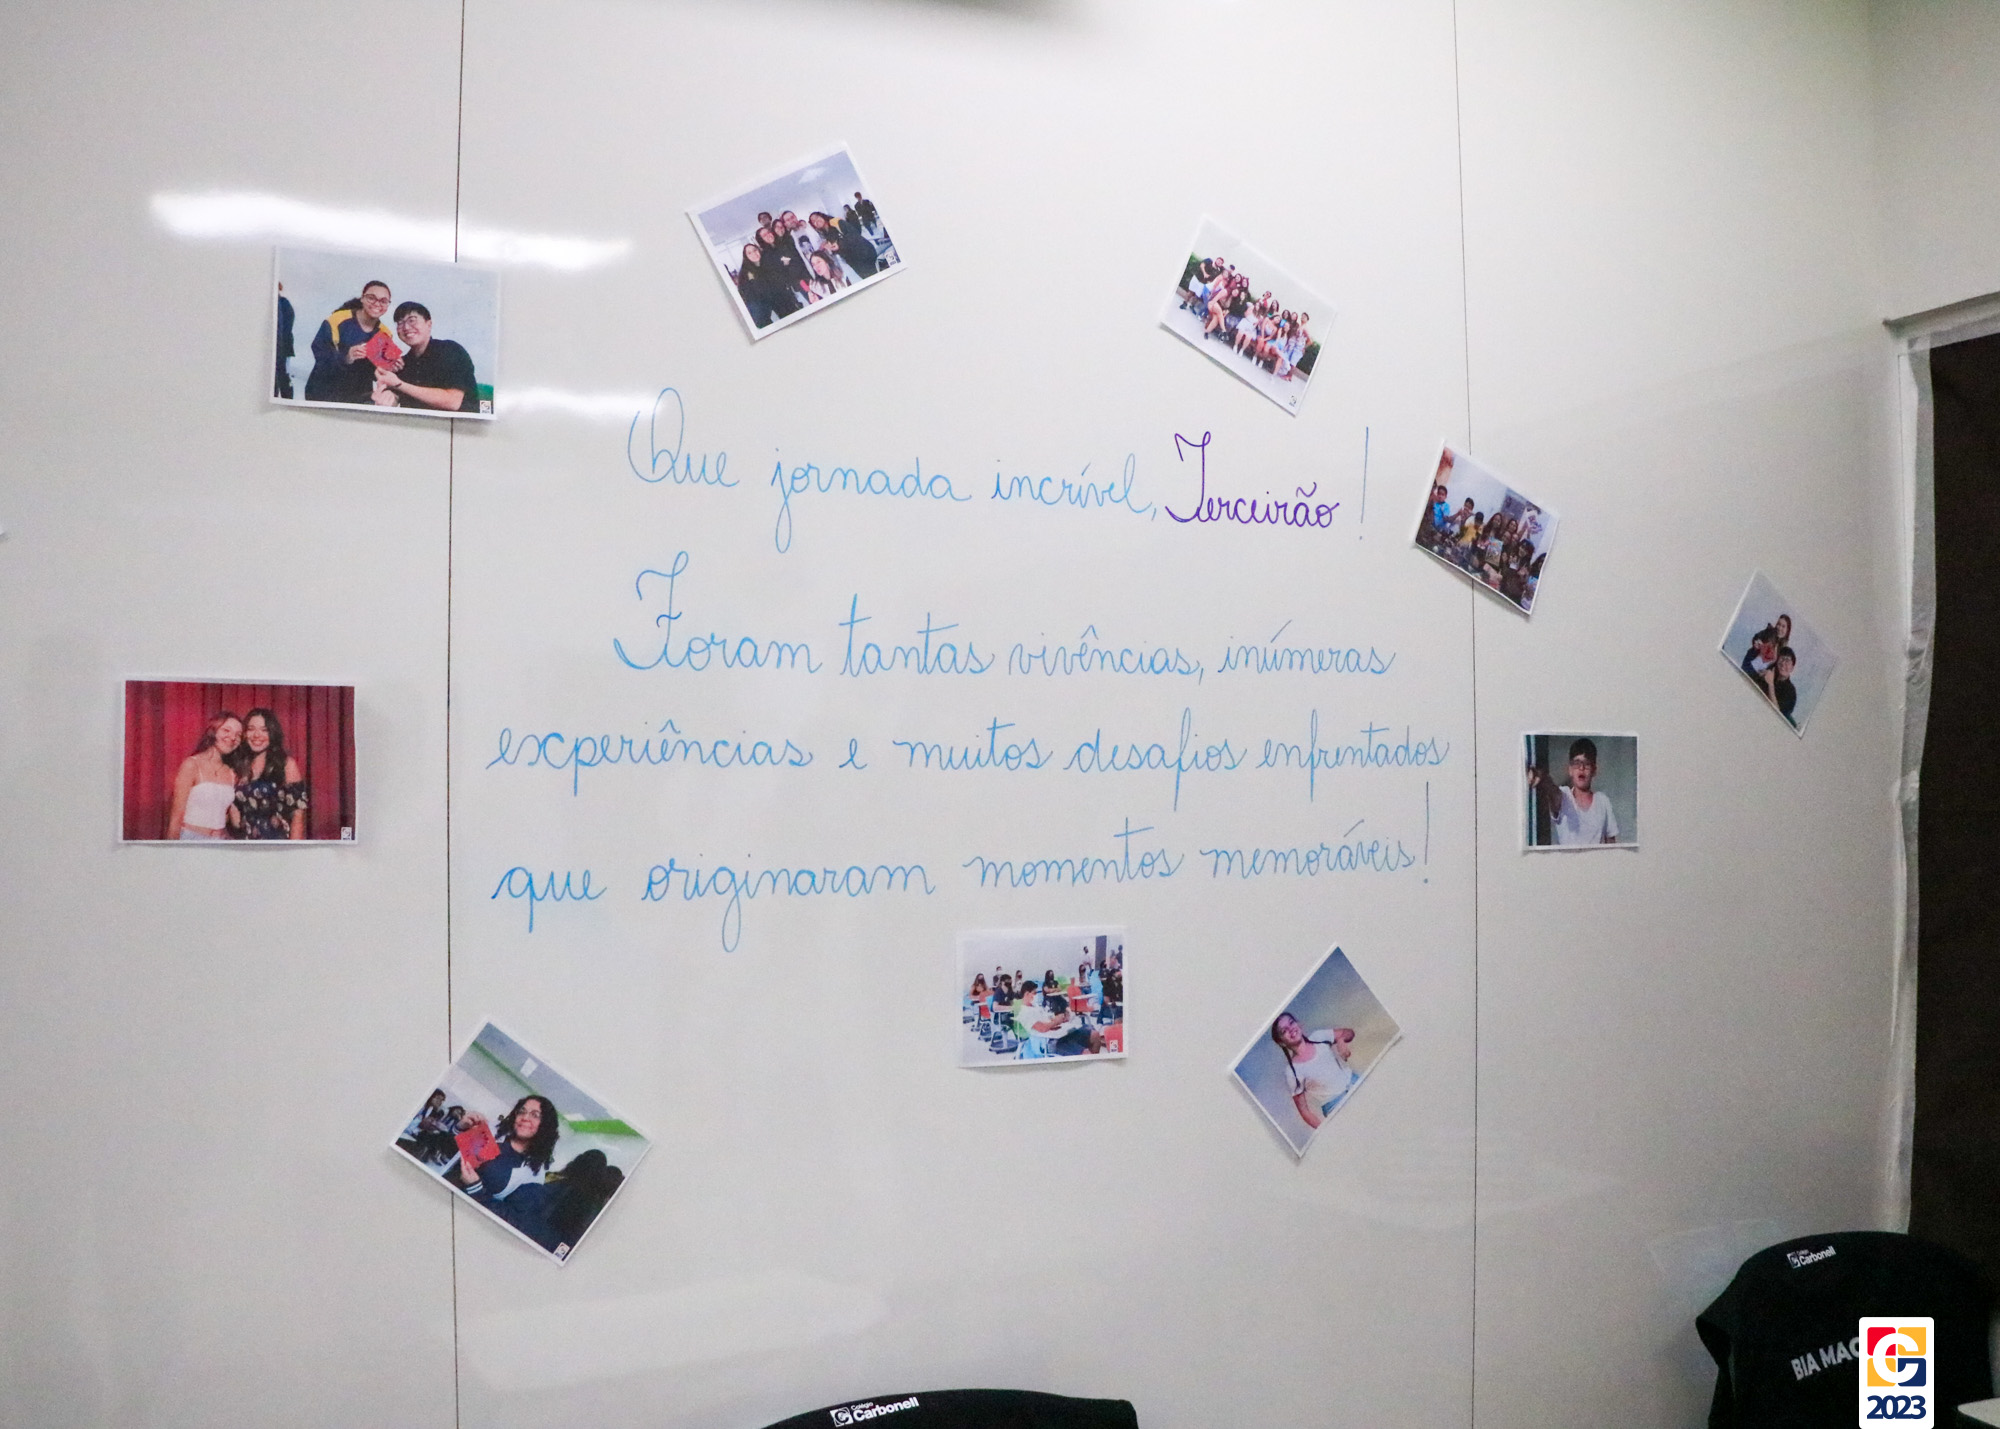 Que jornada incrível, Terceirão!
Foram tantas vivências, inúmeras
experiências e muitos desafios enfrentados
que originaram momentos memoráveis!
Colégio
Carbonell
Colégio
Carbonell
BIA
2023